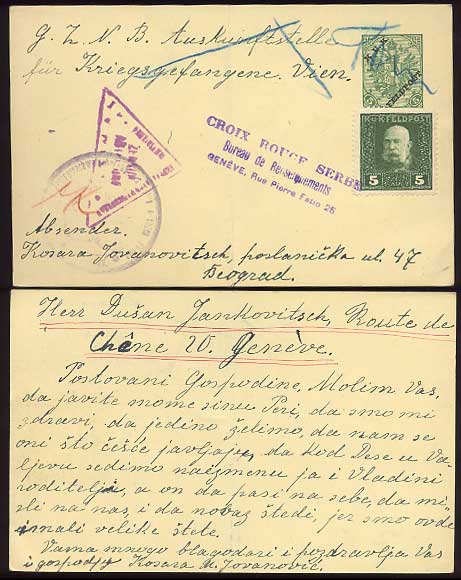 G. Z. N. B. Auskunftstelle
für Kriegsgefangene. Vien.
K.u.K. FELDPOST
5 5
CROIX ROUGE SERBE
Bureau de Renseignements
GENÈVE, Rue Pierre Fatio 25
Absender.
Kosara Jovanovitsch, poslanička ul. 47
Beograd.
Herr Dušan Jankovitsch, Route de
Chêne 20. Genève.
Postovani Gospodine, Molim Vas,
da javite mome sinu Peri, da smo mi
zdravi, da jedino želimo, da nam se
oni što češće javljaju, da kod Dese u Va-
ljevu sedimo naizmenu ja i Vladini
roditelji, a on da pasi na sebe, da mi-
sli na nas, i da novac štedi, jer smo ovde
imali velike štete.
Vama mnogo blagodari i pozdravlja Vas
i gospodju Kosara M. Jovanović.